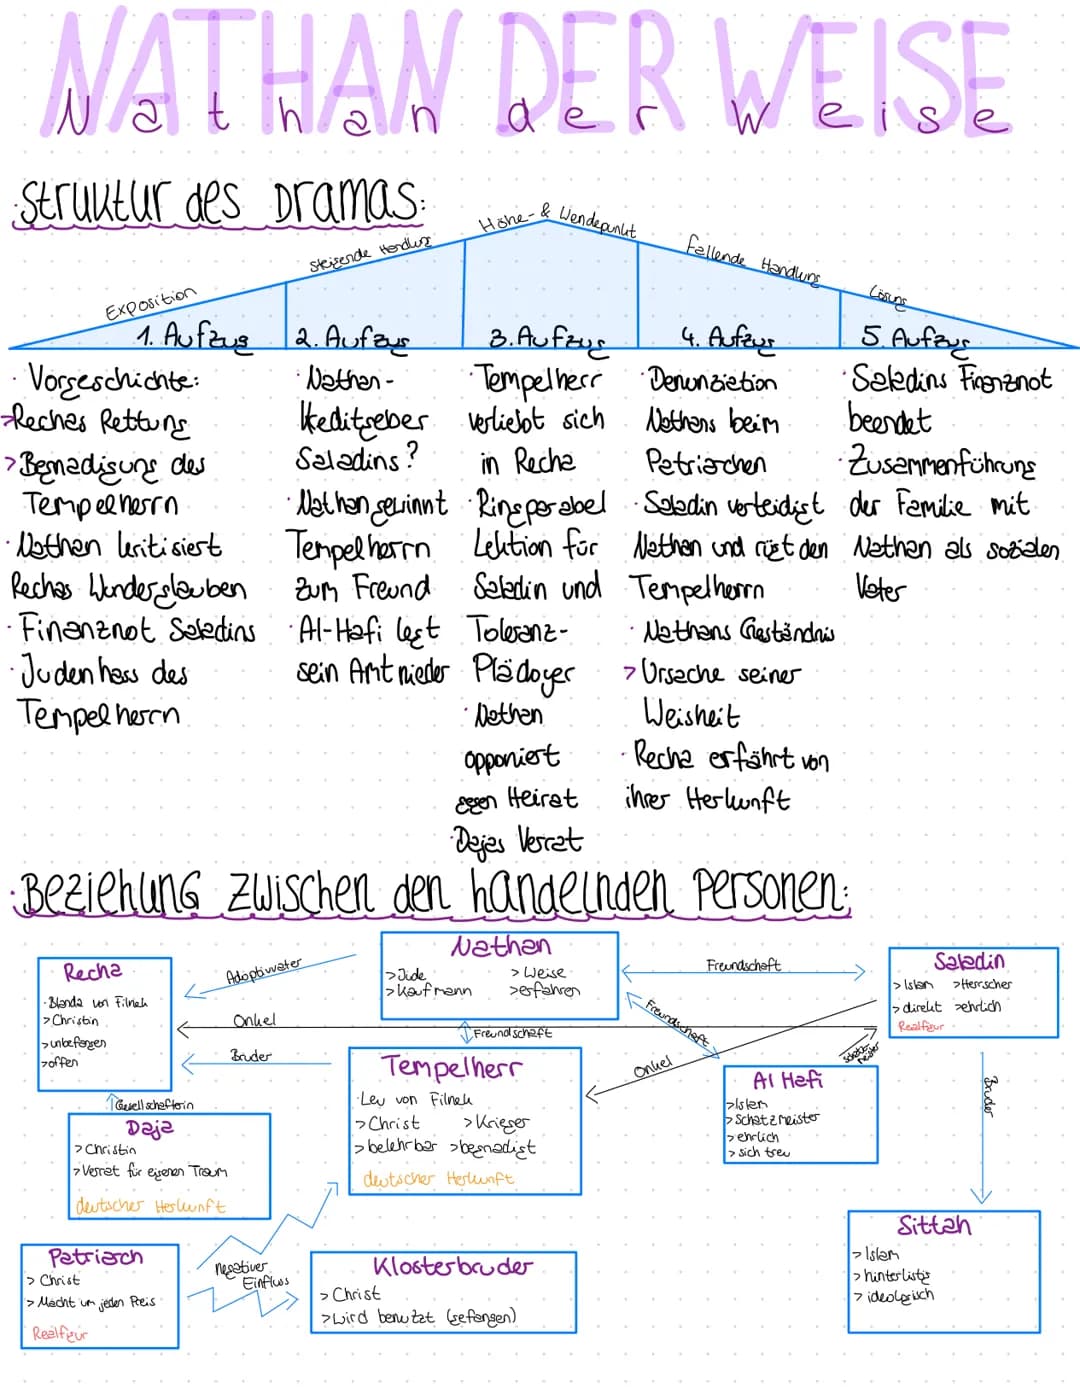 NATHAN DER WEISE
Nathan der Weise
Struktur des Dramas:
Exposition
steigende Handlung
Höhe- & Wendepunkt
Fallende Handlung
Lösung
1. Aufzug
2. Aufzug
3. Aufzug
4. Aufzug
5. Aufzug
· Vorgeschichte:
>Rechas Rettung
> Begnadigung des
Tempelherrn
· Nathan kritisiert
Rechas Wunderglauben
· Finanznot Saladins
· Judenhass des
Tempelherrn
· Nathan-
Keditgeber
Saladins?
· Nathan gewinnt
Tempelherrn
zum Freund
· Al-Hafi legt
sein Amt nieder
· Tempelherr
verliebt sich
in Recha
· Ringparabel
Lektion für
Saladin und
Toleranz-
Plädoyer
· Nathan
opponiert
gegen Heirat
· Dajas Verrat
· Denunziation
Nathans beim
Patriarchen
· Saladin verteidigt
Nathan und rügt den
Tempelherrn
· Nathans Geständnis
> Ursache seiner
Weisheit
· Recha erfährt von
ihrer Herkunft
· Saladins Finanznot
beendet
· Zusammenführung
der Familie mit
Nathan als sozialen
Vater
· Beziehung zwischen den handelnden Personen:
Recha
· Blanda von Filnek
> Christin
> unbefangen
> offen
Adoptivvater
Nathan
> Jude > Weise
> Kaufmann > erfahren
Freundschaft
Saladin
> Islam > Herrscher
> direkt > ehrlich
Realfigur
Onkel
Freundschaft
Freundschaft
Bruder
Onkel
Schatzmeister
Tempelherr
· Leu von Filnek
> Christ > Krieger
> belehrbar > begnadigt
deutscher Herkunft
Al Hafi
> Islam
> Schatzmeister
> ehrlich
> sich treu
Bruder
Gesellschafterin
Daja
> Christin
> Verrat für eigenen Traum
deutscher Herkunft
Sittah
> Islam
> hinterlistig
> ideologisch
Patriarch
> Christ
> Macht um jeden Preis
Realfigur
negativer
Einfluss
Klosterbruder
> Christ
> wird benutzt (gefangen)